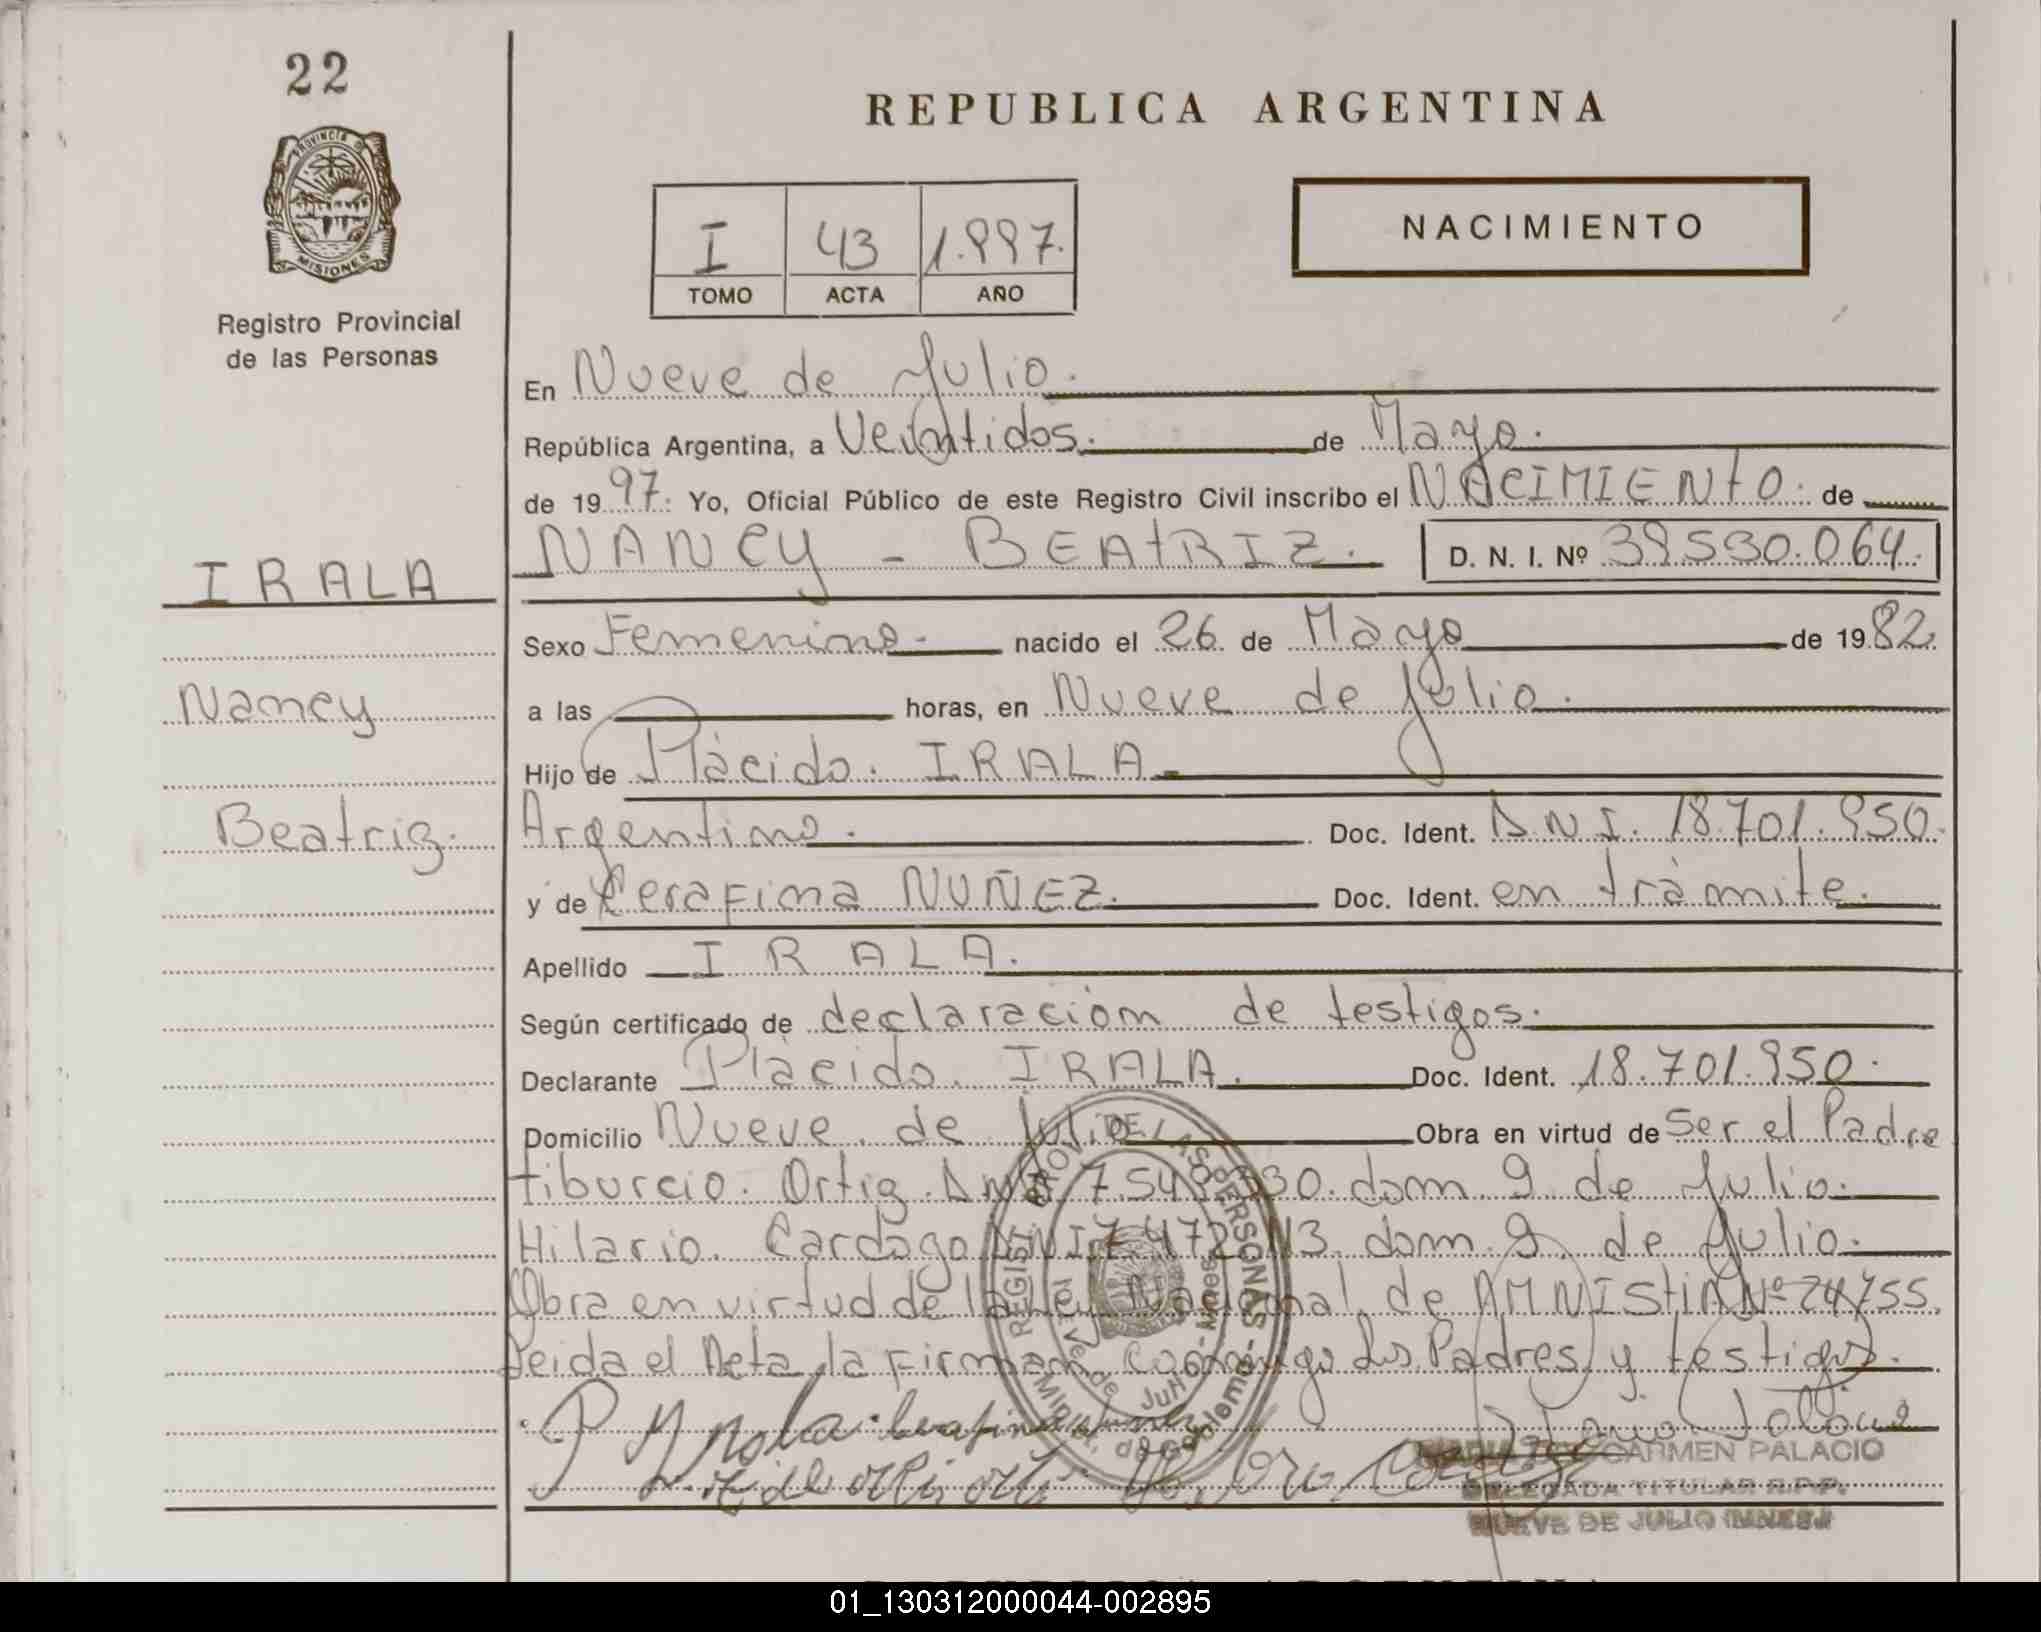 22
REPUBLICA ARGENTINA
PROVINCIA DE
MISIONES
Registro Provincial
de las Personas
NACIMIENTO
I 43 1.997.
TOMO ACTA AÑO
En Nueve de Julio.
República Argentina, a Veintidos. de Mayo.
de 19 97. Yo, Oficial Público de este Registro Civil inscribo el NACIMIENTO. de
IRALA
NANCY - BEATRIZ. D. N. I. Nº 39.530.064.
Sexo Femenino. nacido el 26 de Mayo de 19 82.
Nancy
a las horas, en Nueve de Julio.
Hijo de Plácido. IRALA.
Beatriz.
Argentino. Doc. Ident. D.N.I. 18.701.950.
y de Cerafina NUÑEZ. Doc. Ident. en trámite.
Apellido IRALA.
Según certificado de declaración de testigos.
Declarante Plácido. IRALA. Doc. Ident. 18.701.950.
Domicilio Nueve de Julio Obra en virtud de Ser el Padre
tiburcio. Ortiz. dom. 9 de Julio.
Hilario. Cardozo DNI dom. 9 de Julio.
Obra en virtud de la Ley Nacional de AMNIStiA Nº 24755.
Leida el Acta, la Firman conmigo los Padres y testigos.
MARIA DEL CARMEN PALACIO
DELEGADA TITULAR R.P.P.
NUEVE DE JULIO (MNES.)
01_130312000044-002895